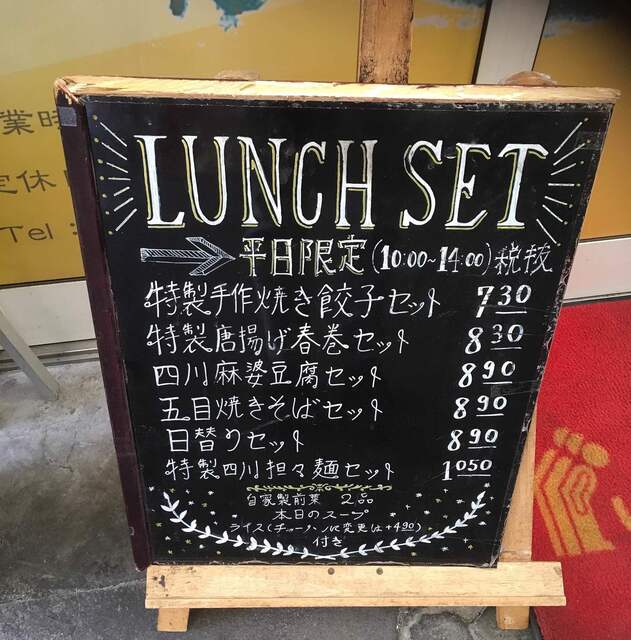 業時
定休日
Tel:
LUNCH SET
平日限定(10:00~14:00)税抜
特製手作焼き餃子セット 730
特製唐揚げ春巻セット 830
四川麻婆豆腐セット 890
五目焼きそばセット 890
日替りセット 890
特製四川担々麺セット 1050
自家製前菜 2品
本日のスープ
ライス(チャーハンに変更は+490)
付き